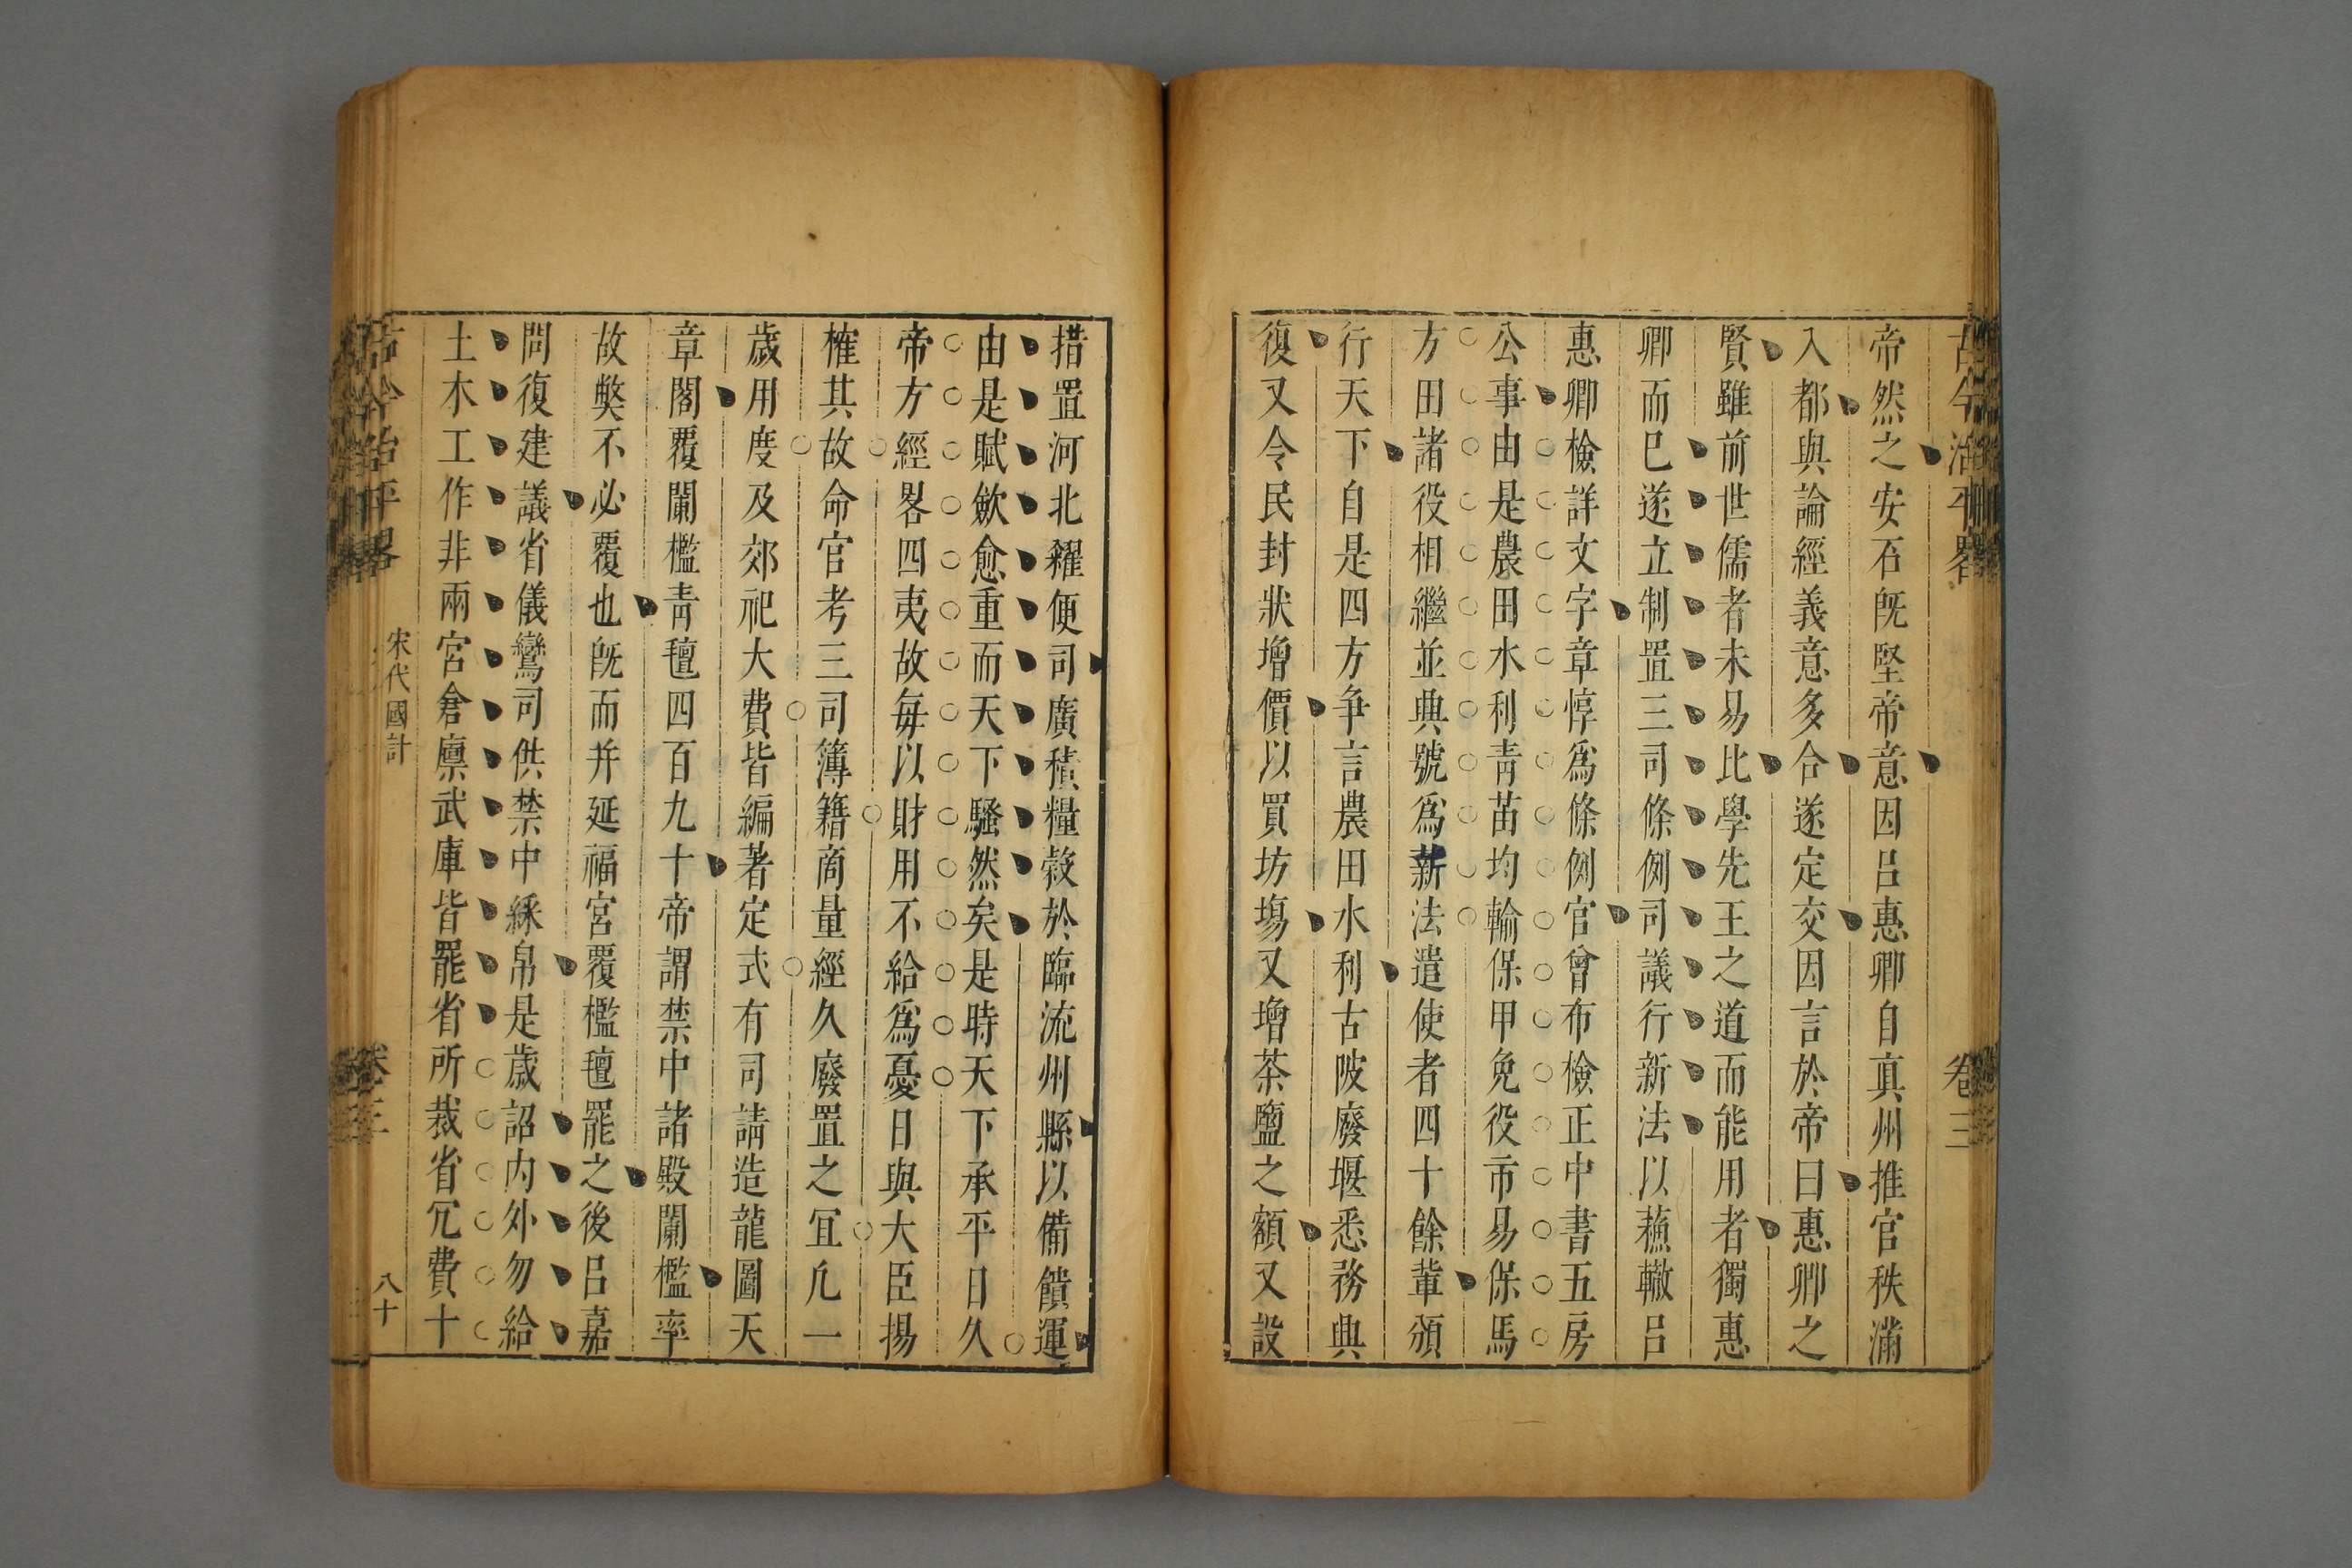 古今治平畧
卷三
帝然之安石旣堅帝意因呂惠卿自真州推官秩滿
入都與論經義意多合遂定交因言於帝曰惠卿之
賢雖前世儒者未易比學先王之道而能用者獨惠
卿而巳遂立制置三司條例司議行新法以蘓轍呂
惠卿檢詳文字章惇爲條例官曾布檢正中書五房
公事由是農田水利青苗均輸保甲免役市易保馬
方田諸役相繼並興號爲新法遣使者四十餘輩頒
行天下自是四方爭言農田水利古陂廢堰悉務興
復又令民封狀增價以買坊塲又增茶鹽之額又設
措置河北糴便司廣積糧穀於臨流州縣以備饋運
由是賦斂愈重而天下騷然矣是時天下承平日久
帝方經畧四夷故每以財用不給爲憂日與大臣揚
榷其故命官考三司簿籍商量經久廢置之冝凢一
歲用度及郊祀大費皆編著定式有司請造龍圖天
章閣覆闌檻青氊四百九十帝謂禁中諸殿闌檻率
故獘不必覆也旣而并延福宮覆檻氊罷之後呂嘉
問復建議省儀鸞司供禁中綵帛是歲詔內外勿給
土木工作非兩宮倉廪武庫皆罷省所裁省冗費十
古今治平畧
宋代國計
卷三
八十